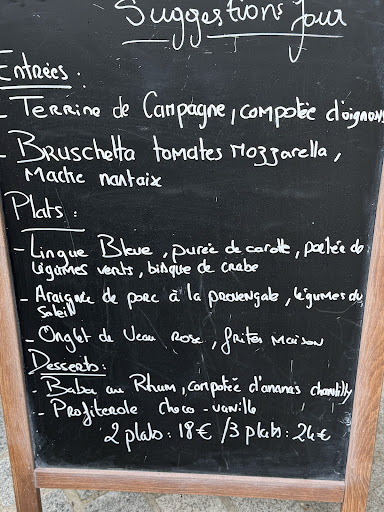 Suggestions Jour
Entrées :
- Terrine de Campagne, compotée d'oignons
- Bruschetta tomates Mozzarella,
Mache nantaix
Plats :
- Lingue Bleue, purée de carotte, poelée de
légumes verts, bisque de crabe
- Araignée de porc à la provençale, légumes du
soleil
- Onglet de Veau Rose, frites Maison
Desserts :
- Baba au Rhum, compotée d'ananas chantilly
- Profiterole choco-vanille
2 plats : 18€ / 3 plats : 24€